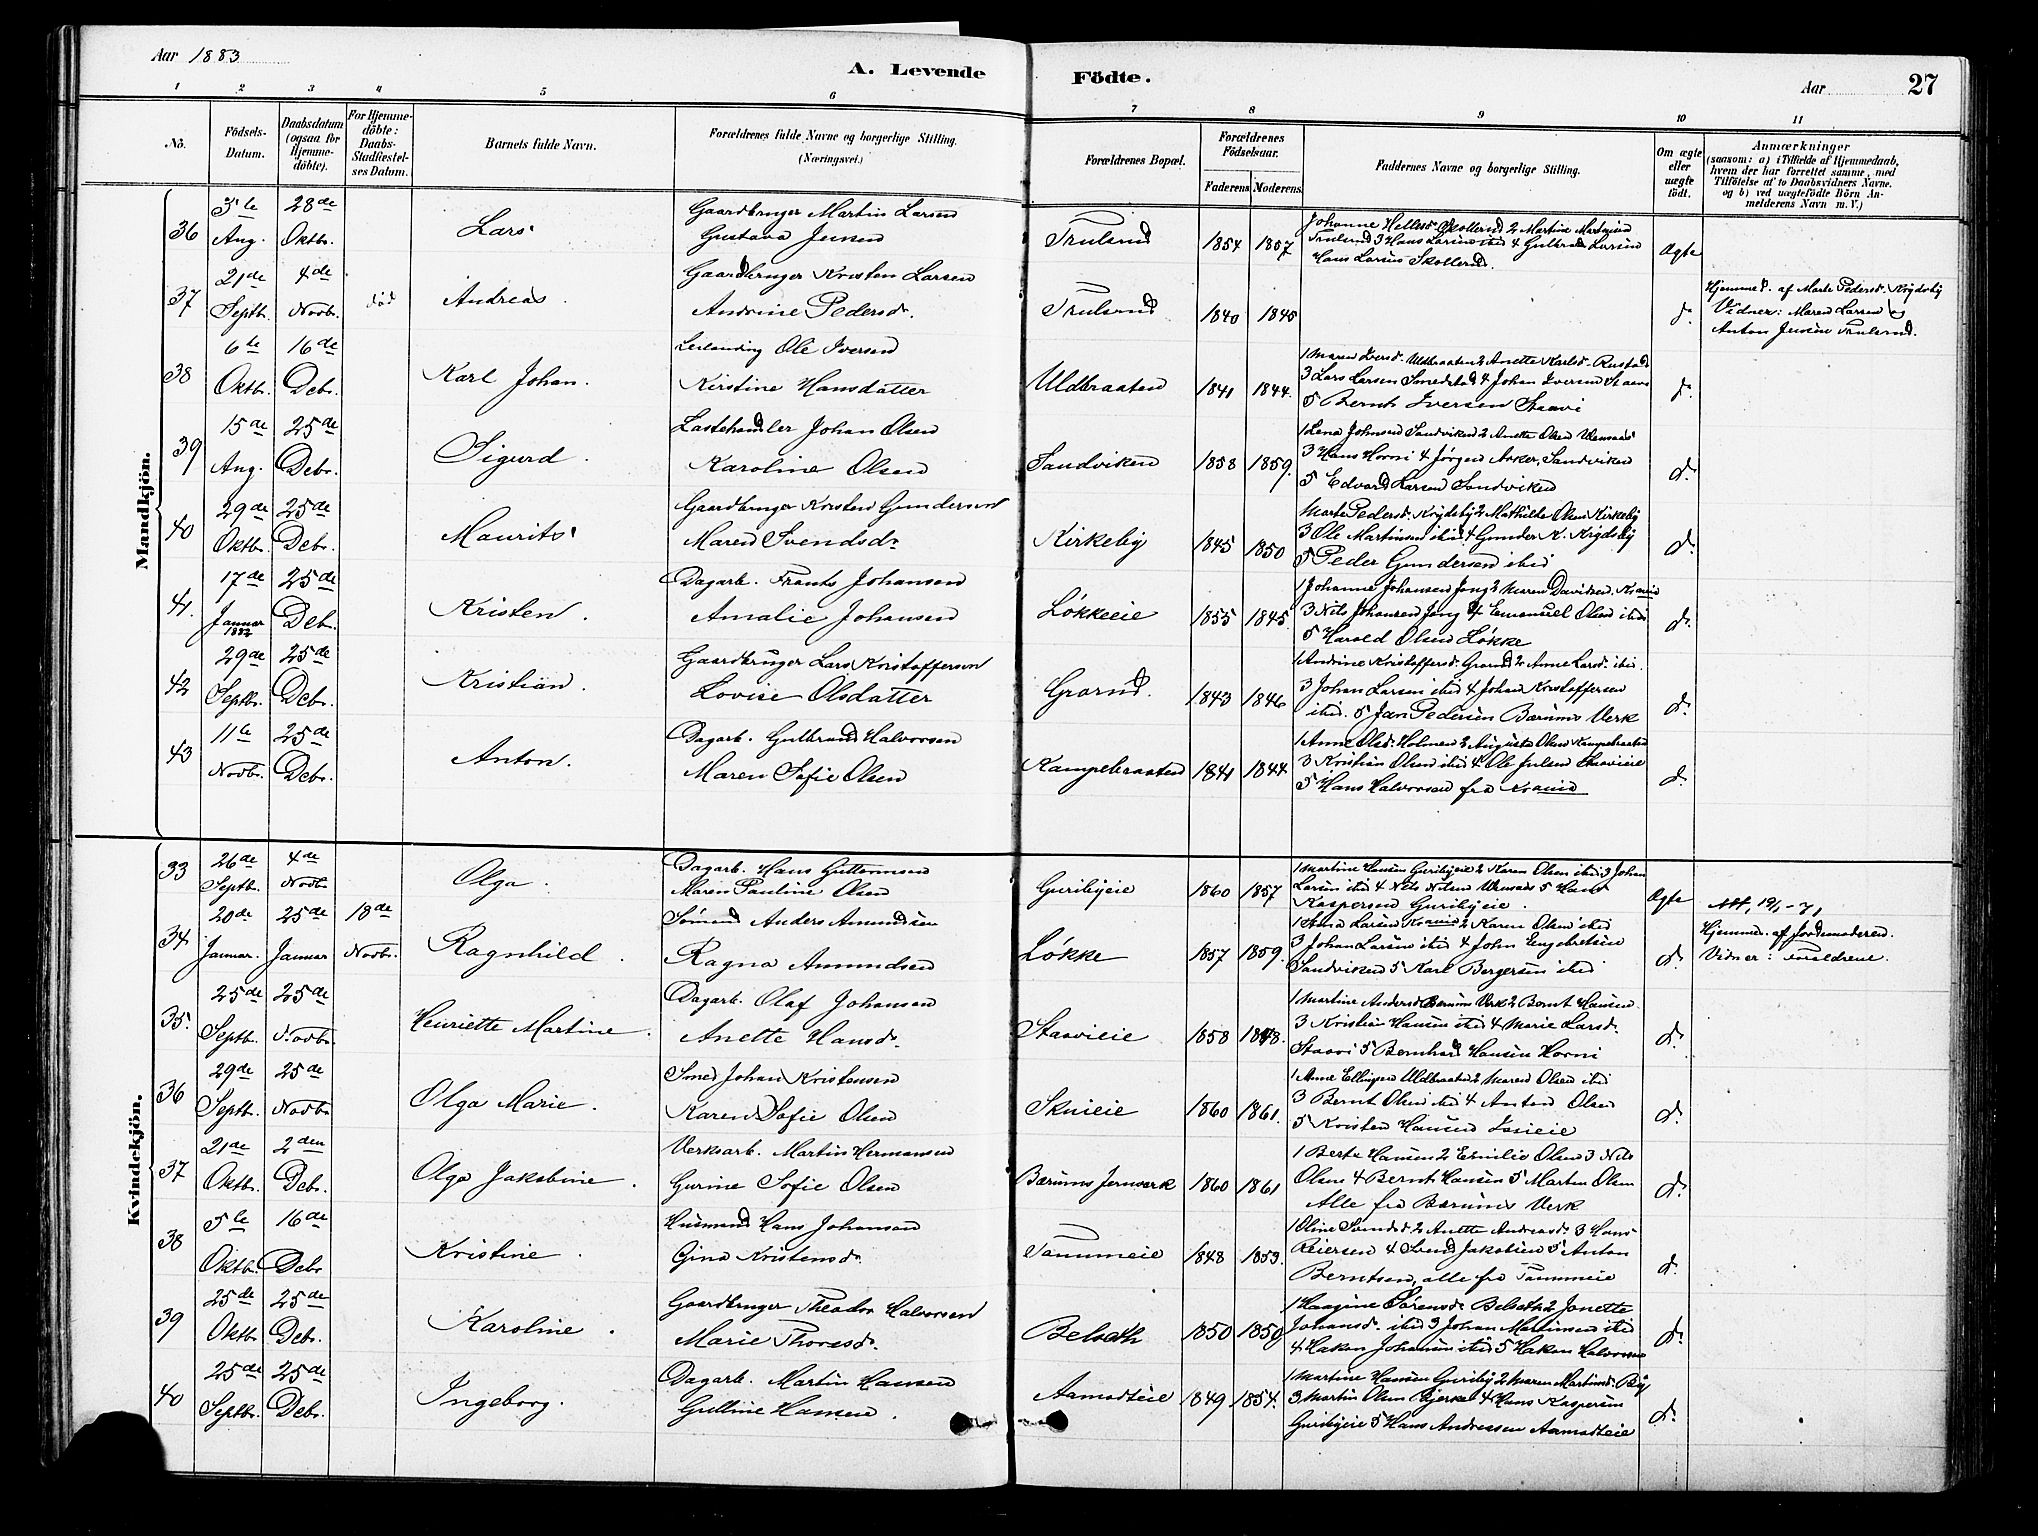 Aar 1883
A. Levende Födte.
Aar
27
1 2 3 4 5 6 7 8 9 10 11
No.
Födsels-Datum.
Daabsdatum (ogsaa for Hjemme-döbte).
For Hjemme-döbte: Daabs-Stadfæstel-ses Datum.
Barnets fulde Navn.
Forældrenes fulde Navne og borgerlige Stilling. (Næringsvei.)
Forældrenes Bopæl.
Forældrenes Födselsaar.
Faderens Moderens
Faddernes Navne og borgerlige Stilling.
Om ægte eller uægte födt.
Anmærkninger
(saasom: a) i Tilfælde af Hjemmedaab,
hvem der har forrettet samme, med
Tilföielse af to Daabsvidners Navne.
og b) ved uægtefödte Börn An-
melderens Navn m. V.)
Mandkjön.
36 5te Aug. 28de Oktbr. Lars
Gaardbruger Martin Larsen
Gustava Jensen
Trulsrud 1854 1857
3 Hans Larsen ibid 4 Gulbrand Larsen
Hans Larsen Skollerud.
Ægte
37 21de Septbr. 4de Novbr. död Andreas.
Gaardbruger Kristen Larsen
Andrine Pedersd.
Trulsrud 1840 1845
d.
Hjemmed. af Marte Pedersd.
Vidner: Maren Larsen og
Anton Jensen Trulsrud.
38 6te Oktbr. 16de Debr. Karl Johan.
Leilænding Ole Iversen
Kirstine Hansdatter
Uldbraaten 1841 1844.
1 Maren Iversd. Uldbraaten 2 Anette Karlsd. Rustad
3 Lars Larsen Smedstad 4 Johan Iversen Staavi
5 Bernt Iversen Staavi
d.
39 15de Aug. 25de Debr. Sigurd.
Lastehandler Johan Olsen
Karoline Olsen
Sandviken 1858 1859.
1 Lena Johnsen Sandviken 2 Anette Olsen
3 Hans Horni 4 Jørgen Asker, Sandviken
5 Edvard Larsen Sandviken
d.
40 29de Oktbr. 25de Debr. Maurits
Gaardbruger Kristen Gundersen
Maren Svendsdr.
Kirkeby 1845 1850
Marte Pedersd. 2 Mathilde Olsen Kirkeby
3 Ole Martinsen ibid 4 Gunder K.
5 Peder Gundersen ibid
d.
41. 17de Januar 1883 25de Debr. Kristen.
Dagarb. Frants Johansen
Amalie Johansen
Løkkeeie 1855 1845
1 Johanne Johansen Jong 2 Maren Davidsen
3 Nils Johansen Jong 4 Emanuel Olsen ibid
5 Harald Olsen Løkke
d.
42 29de Septbr. 25de Debr. Kristian.
Gaardbruger Lars Kristoffersen
Lovise Olsdatter
1843 1846
1 Andrine Kristoffersd. 2 Anne Larsd. ibid.
3 Johan Larsen ibid 4 Johan Kristoffersen
ibid. 5 Jan Pedersen Bærums Verk
d.
43 11te Novbr. 25de Debr. Anton.
Dagarb. Gulbrand Halvorsen
Maren Sofie Olsen
Kampebraaten 1841 1844
1 Anne Olsd. Holmen 2 Augusta Olsen Kampebraaten
3 Kristian Olsen ibid 4 Ole Julsen Staavieie
5 Hans Halvorsen fra
d.
Kvindekjön.
33 26de Septbr. 4de Novbr. Olga.
Dagarb. Hans Guttormsen
Maren Pauline Olsen
Guribyeie 1860 1857
1 Martine Hansen Guribyeie 2 Karen Olsen ibid 3 Johan
Larsen ibid 4 Nils Nilsen 5 Hans
Kaspersen Guribyeie.
Ægte
34 20de Januar. 25de Januar 18de Novbr. Ragnhild.
Sømand Anders Amundsen
Ragna Amundsen
Løkke 1857 1859.
2 Karen Olsen ibid
3 Johan Larsen ibid 4 John Engebretsen
Sandviken 5 Karl Bergersen ibid
d.
Hjemmed. af Jordemoderen.
Vidner: Forældrene.
35. 25de Septbr. 25de Novbr. Henriette Martine.
Dagarb. Olaf Johansen
Anette Hansd.
Staavieie 1858 1848.
1 Martine Andersd. Bærums Verk 2 Bernt Hansen
3 Kristian Hansen ibid 4 Marie Larsd.
Staavi 5 Bernhard Hansen Horni
d.
36 29de Septbr. 25de Novbr. Olga Marie.
Smed Johan Kristensen
Karen Sofie Olsen
Skuieie 1860 1861.
1 Anne Ellingsen Uldbraaten 2 Maren Olsen ibid
3 Bernt Olsen ibid 4 Anton Olsen
5 Kristen Hansen
d.
37 21de Oktbr. 2den Debr. Olga Jakobine.
Verksarb. Martin Hermansen
Gurine Sofie Olsen
Bærums Jernværk 1860 1861
1 Berte Hansen 2 Emilie Olsen 3 Nils
Olsen 4 Bernt Hansen 5 Marten Olsen
Alle fra Bærums Verk
d.
38 5te Oktbr. 16de Debr Kristine.
Husmand Hans Johansen
Gina Kristensd.
Tanumeie 1848 1853.
1 Oline Svendsd. 2 Anette Andreasd. 3 Hans
Reiersen 4 Svend Jakobsen 5 Anton
Berntsen, alle fra Tanumeie
d.
39 25de Oktbr. 25de Debr. Karoline.
Gaardbruger Theodor Halvorsen
Marie Thoresd.
Belseth 1850 1850
1 Haagine Sørensd. Belseth 2 Janette
Johansd. ibid 3 Johan Martinsen ibid
4 Hakon Johansen ibid 5 Hakon Halvorsen
d.
40 25de Septbr. 25de Debr. Ingeborg.
Dagarb. Martin Hansen
Gulline Hansen.
Aamodteie 1849 1854.
1 Martine Hansen Guriby 2 Maren Martinsd. By
3 Martin Olsen Bjerke 4 Hans Kaspersen
Guribyeie 5 Hans Andreassen Aamodteie
d.